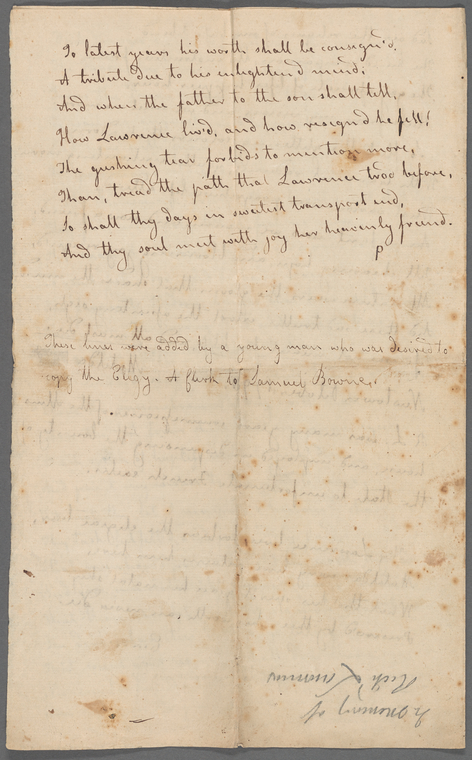 To latest years his worth shall be consign'd.
A tribute due to his enlighten'd mind;
And when the father to the son shall tell,
How Lawrence liv'd, and how resign'd he fell!
The gushing tear forbids to mention more,
Than, tread the path that Lawrence trod before,
So shall thy days in sweetest transport end,
And thy soul meet with joy her heavenly friend.
P
These lines were added by a young man who was desired to
copy the Elegy. A Clerk to Samuel Bowne.
In memory of
Rich Lawrence